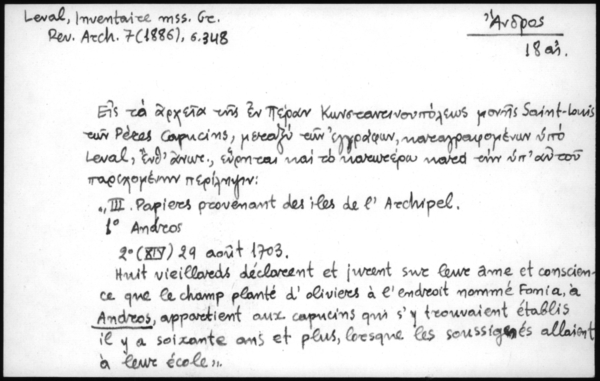 Leval, Inventaire mss. Gr.
Rev. Arch. 7 (1886), σ. 348
Ἄνδρος
18 αἰ.
Εἰς τὰ ἀρχεῖα τῆς ἐν Πέραν Κωνσταντινουπόλεως μονῆς Saint-Louis
τῶν Pères Capucins, μεταξὺ τῶν ἐγγράφων, καταγραφομένων ὑπὸ
Leval, ἔνθ' ἀνωτ., εὕρηται καὶ τὸ κατωτέρω κατὰ τὴν ὑπ' αὐτοῦ
παρεχομένην περίληψιν:
"III. Papiers provenant des îles de l' Archipel.
1° Andros
2° (XIV) 29 août 1703.
Huit vieillards déclarent et jurent sur leur âme et conscien-
ce que le champ planté d'oliviers à l'endroit nommé Fonia, à
Andros, appartient aux capucins qui s'y trouvaient établis
il y a soixante ans et plus, lorsque les soussignés allaient
à leur école".